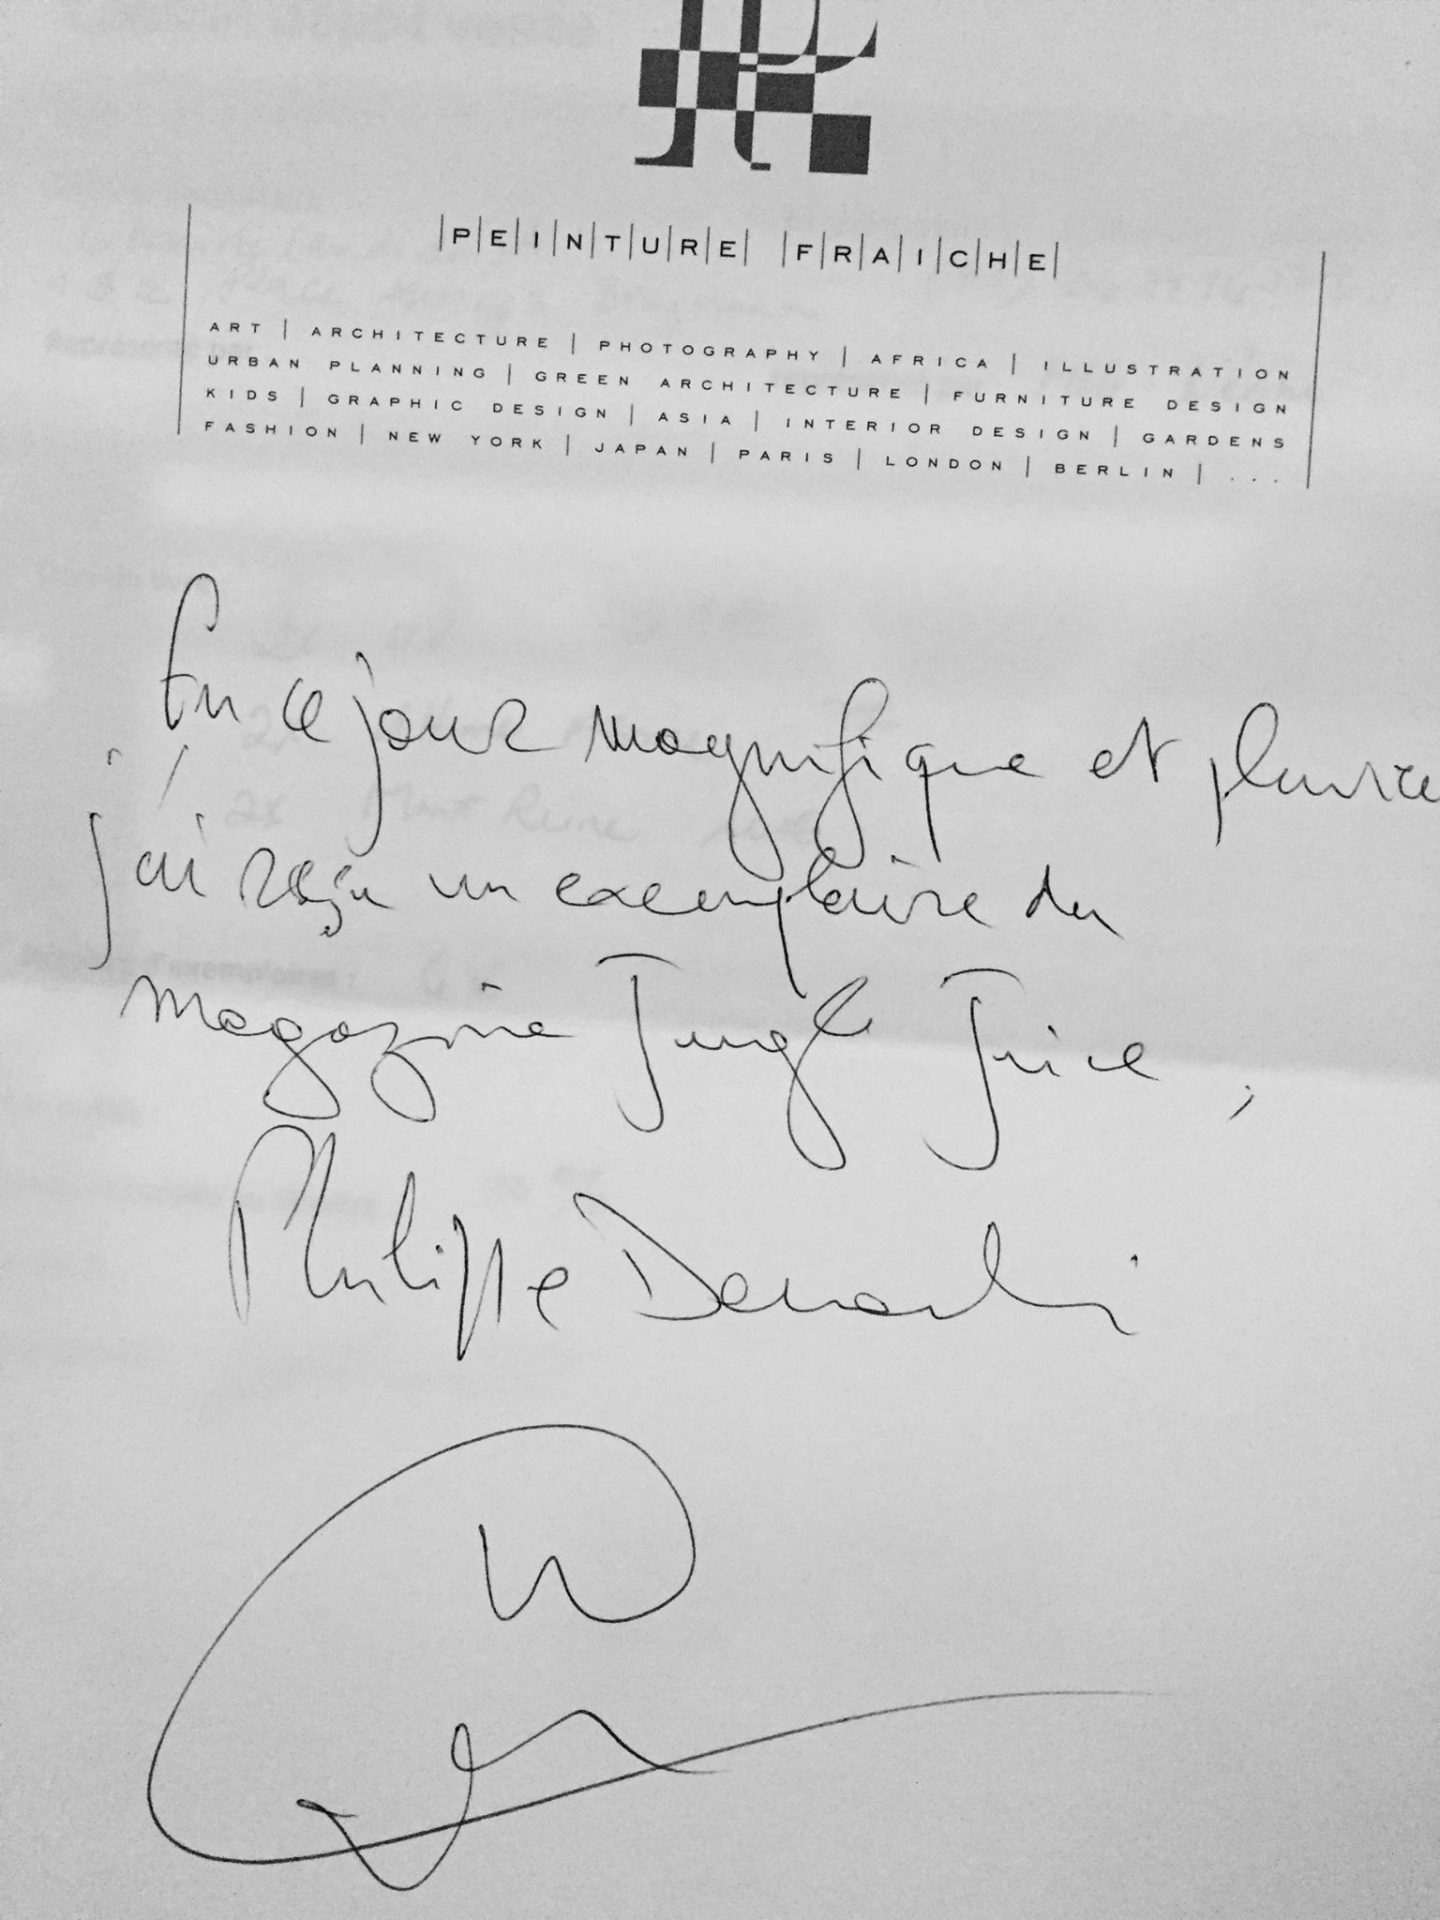 |P|E|I|N|T|U|R|E| |F|R|A|I|C|H|E|
ART | ARCHITECTURE | PHOTOGRAPHY | AFRICA | ILLUSTRATION
URBAN PLANNING | GREEN ARCHITECTURE | FURNITURE DESIGN
KIDS | GRAPHIC DESIGN | ASIA | INTERIOR DESIGN | GARDENS
FASHION | NEW YORK | JAPAN | PARIS | LONDON | BERLIN | ...
En ce jour magnifique et
j'ai reçu un exemplaire du
magazine Jungle Juice,
Philippe